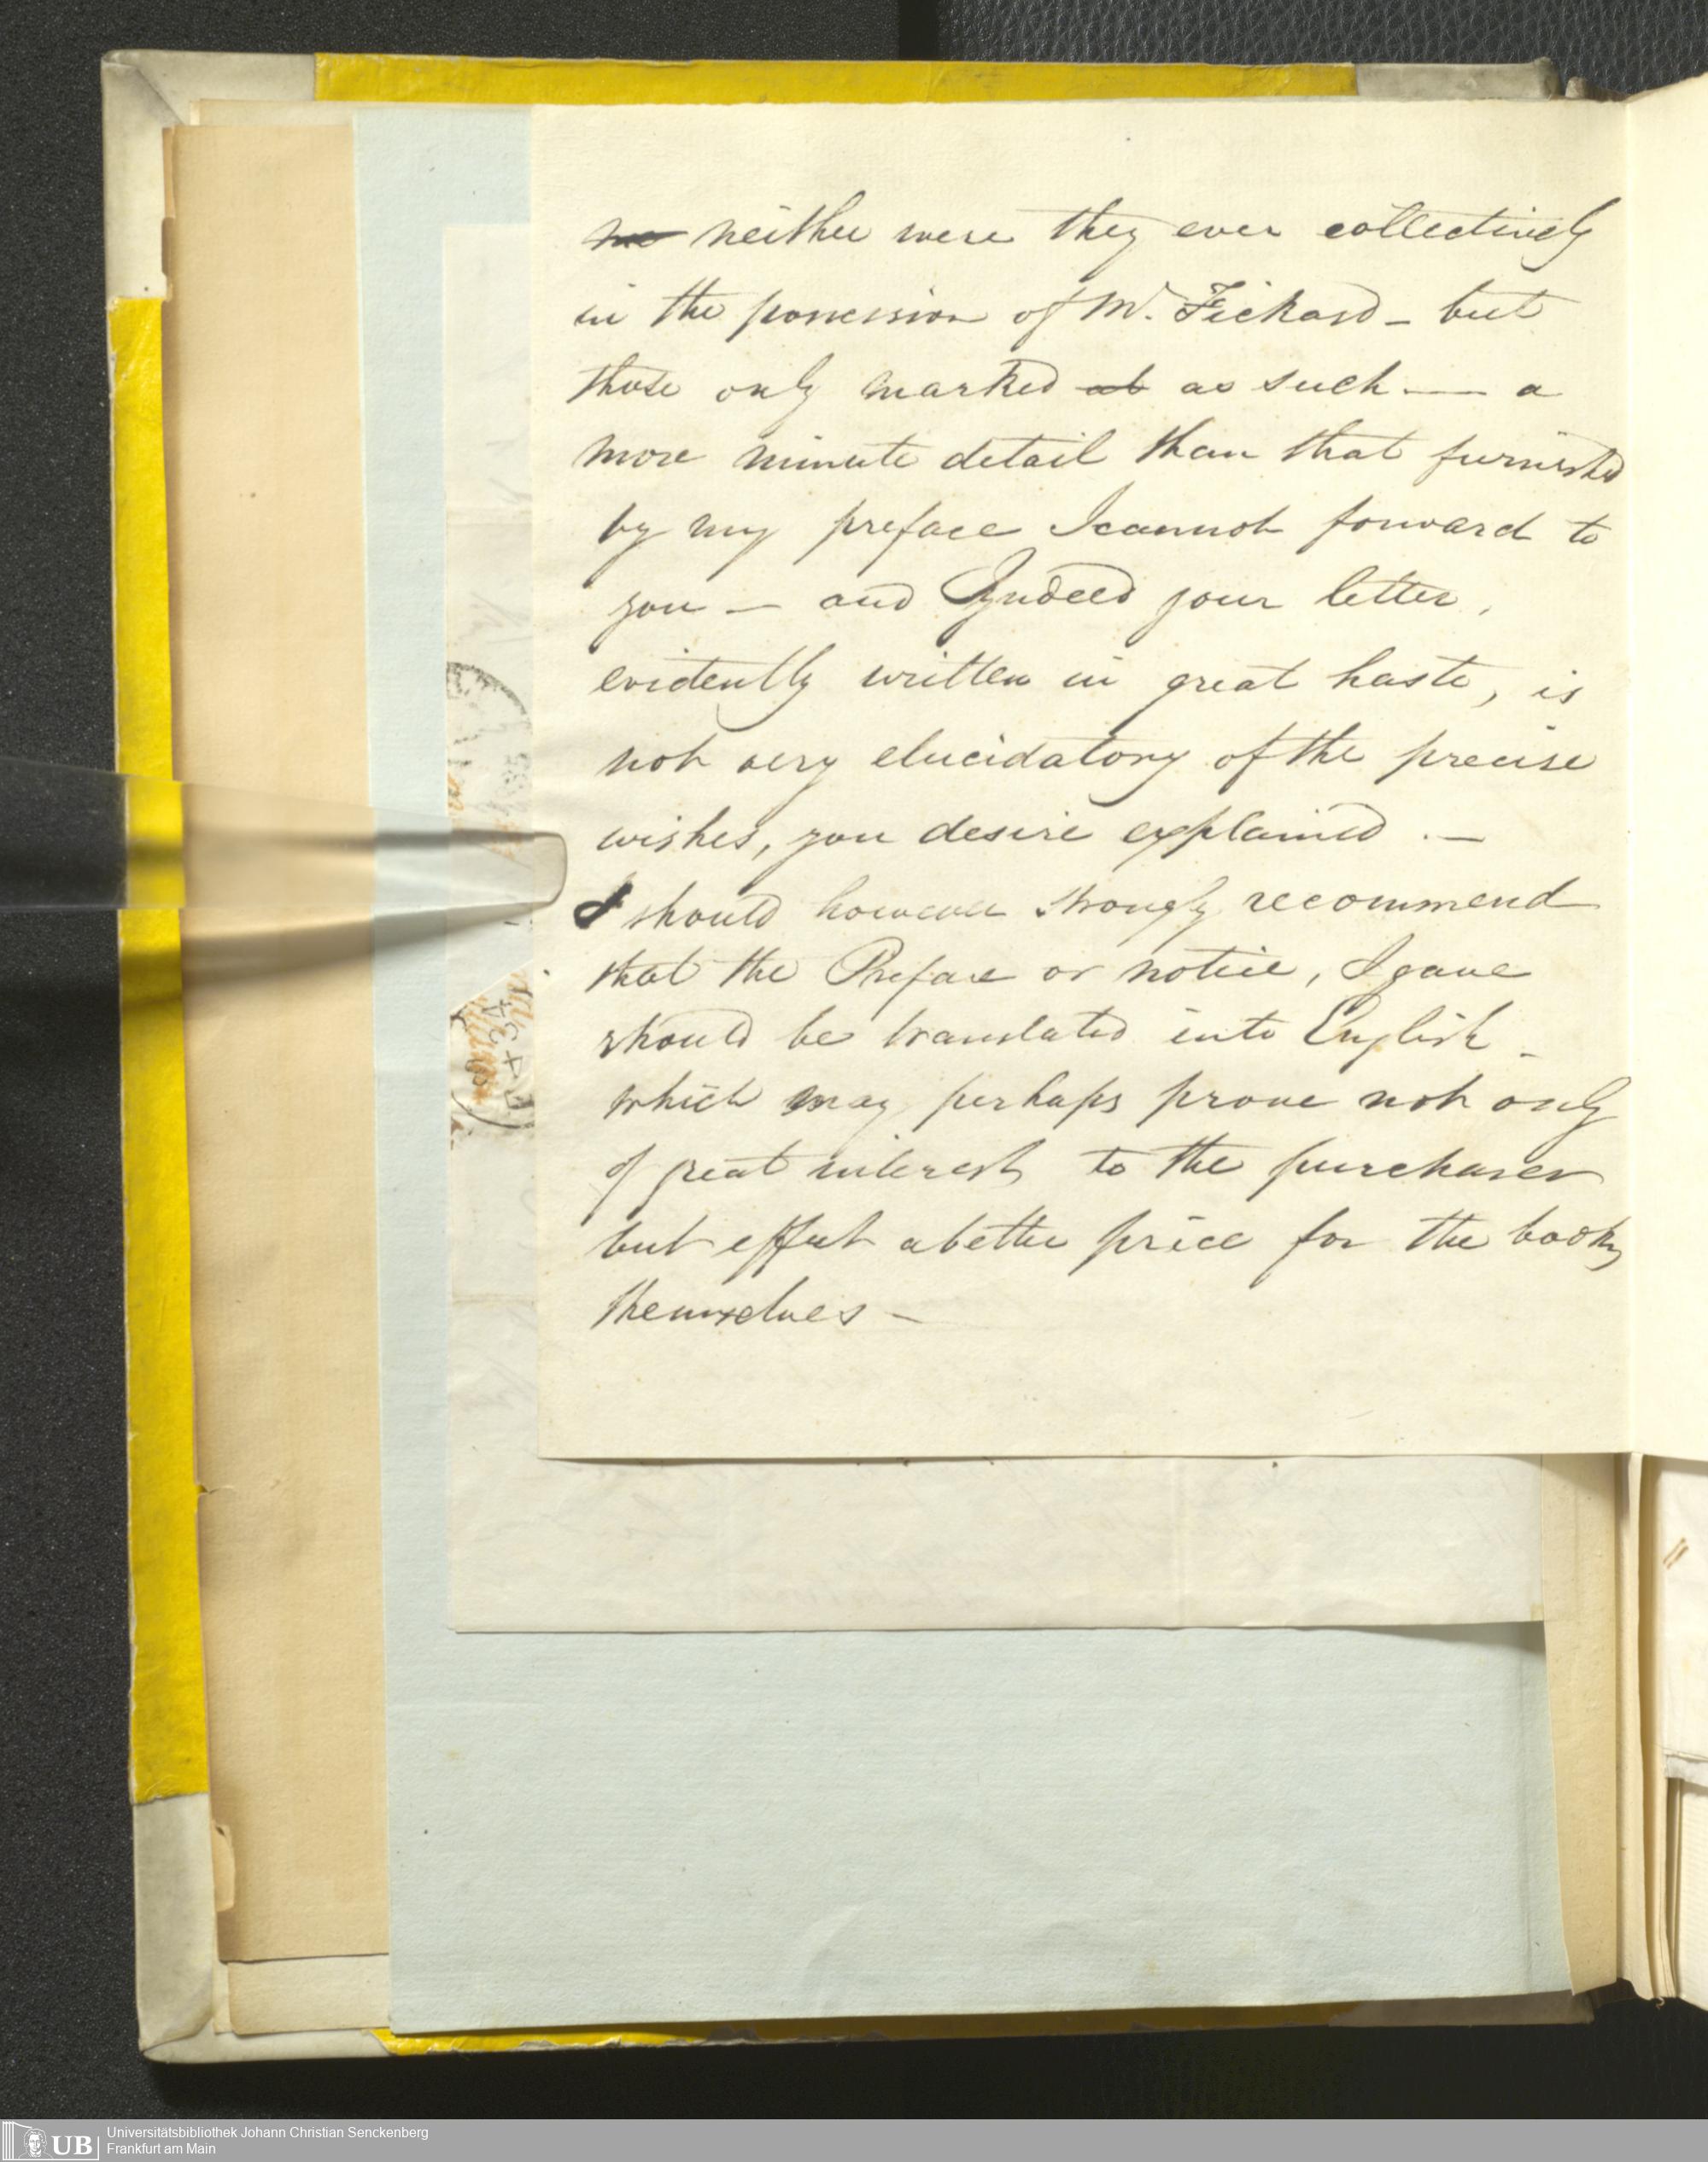 ne neither were they ever collectively
in the possession of Mr. Fickard – but
those only marked ab as such — a
more minute detail than that furnished
by my preface I cannot forward to
you – and Indeed your letter,
evidently written in great haste, is
not very elucidatory of the precise
wishes, you desire explained . —
I should however strongly recommend
that the Preface or notice, I gave
should be translated into English –
which may perhaps prove not only
of great interest to the purchaser
but effect a better price for the books
themselves –
UB
Universitätsbibliothek Johann Christian Senckenberg
Frankfurt am Main